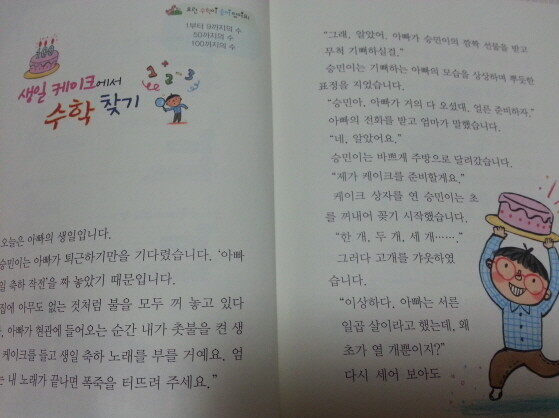 1부터 9까지의 수
50까지의 수
100까지의 수
생일 케이크에서
수학 찾기
오늘은 아빠의 생일입니다.
승민이는 아빠가 퇴근하기만을 기다렸습니다. '아빠
일 축하 작전'을 짜 놓았기 때문입니다.
집에 아무도 없는 것처럼 불을 모두 꺼 놓고 있다
, 아빠가 현관에 들어오는 순간 내가 촛불을 켠 생
케이크를 들고 생일 축하 노래를 부를 거예요. 엄
는 내 노래가 끝나면 폭죽을 터뜨려 주세요."
"그래, 알았어. 아빠가 승민이의 깜짝 선물을 받고
무척 기뻐하실걸."
승민이는 기뻐하는 아빠의 모습을 상상하며 뿌듯한
표정을 지었습니다.
"승민아, 아빠가 거의 다 오셨대. 얼른 준비하자."
아빠의 전화를 받고 엄마가 말했습니다.
"네, 알았어요."
승민이는 바쁘게 주방으로 달려갔습니다.
"제가 케이크를 준비할게요."
케이크 상자를 연 승민이는 초
를 꺼내어 꽂기 시작했습니다.
"한 개, 두 개, 세 개……."
그러다 고개를 갸웃하였
습니다.
"이상하다. 아빠는 서른
일곱 살이라고 했는데, 왜
초가 열 개뿐이지?"
다시 세어 보아도